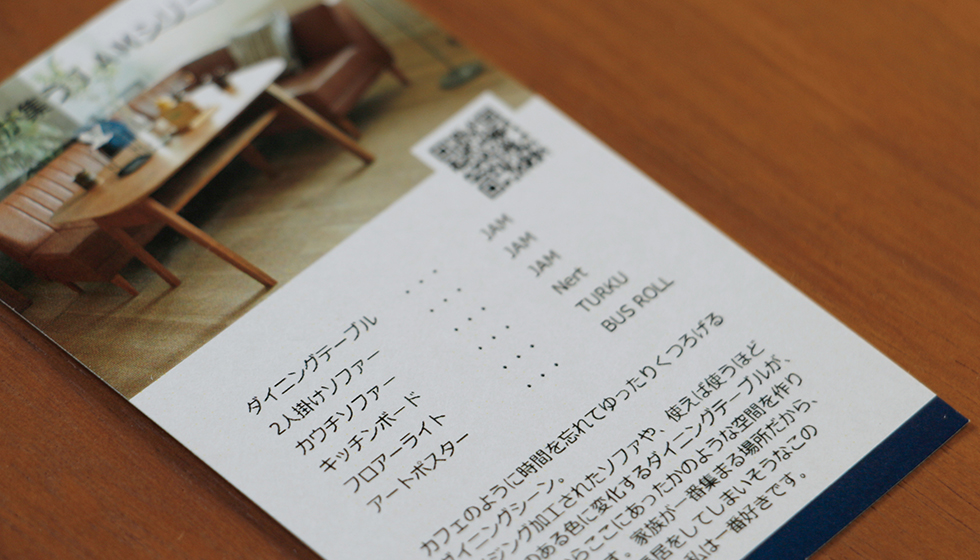 が集う JAMシリー
ダイニングテーブル ・・・ JAM
2人掛けソファー ・・・ JAM
カウチソファー ・・・ JAM
キッチンボード ・・・ Nert
フロアーライト ・・・ TURKU
アートポスター ・・・ BUS ROLL
カフェのように時間を忘れてゆったりくつろげる
ダイニングシーン。
ジング加工されたソファや、使えば使うほど
のある色に変化するダイニングテーブルが、
からここにあったかのような空間を作り
す。家族が一番集まる場所だから、
居をしてしまいそうなこの
私は一番好きです。